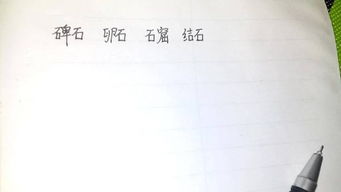 碑石 卵石 石窟 结石